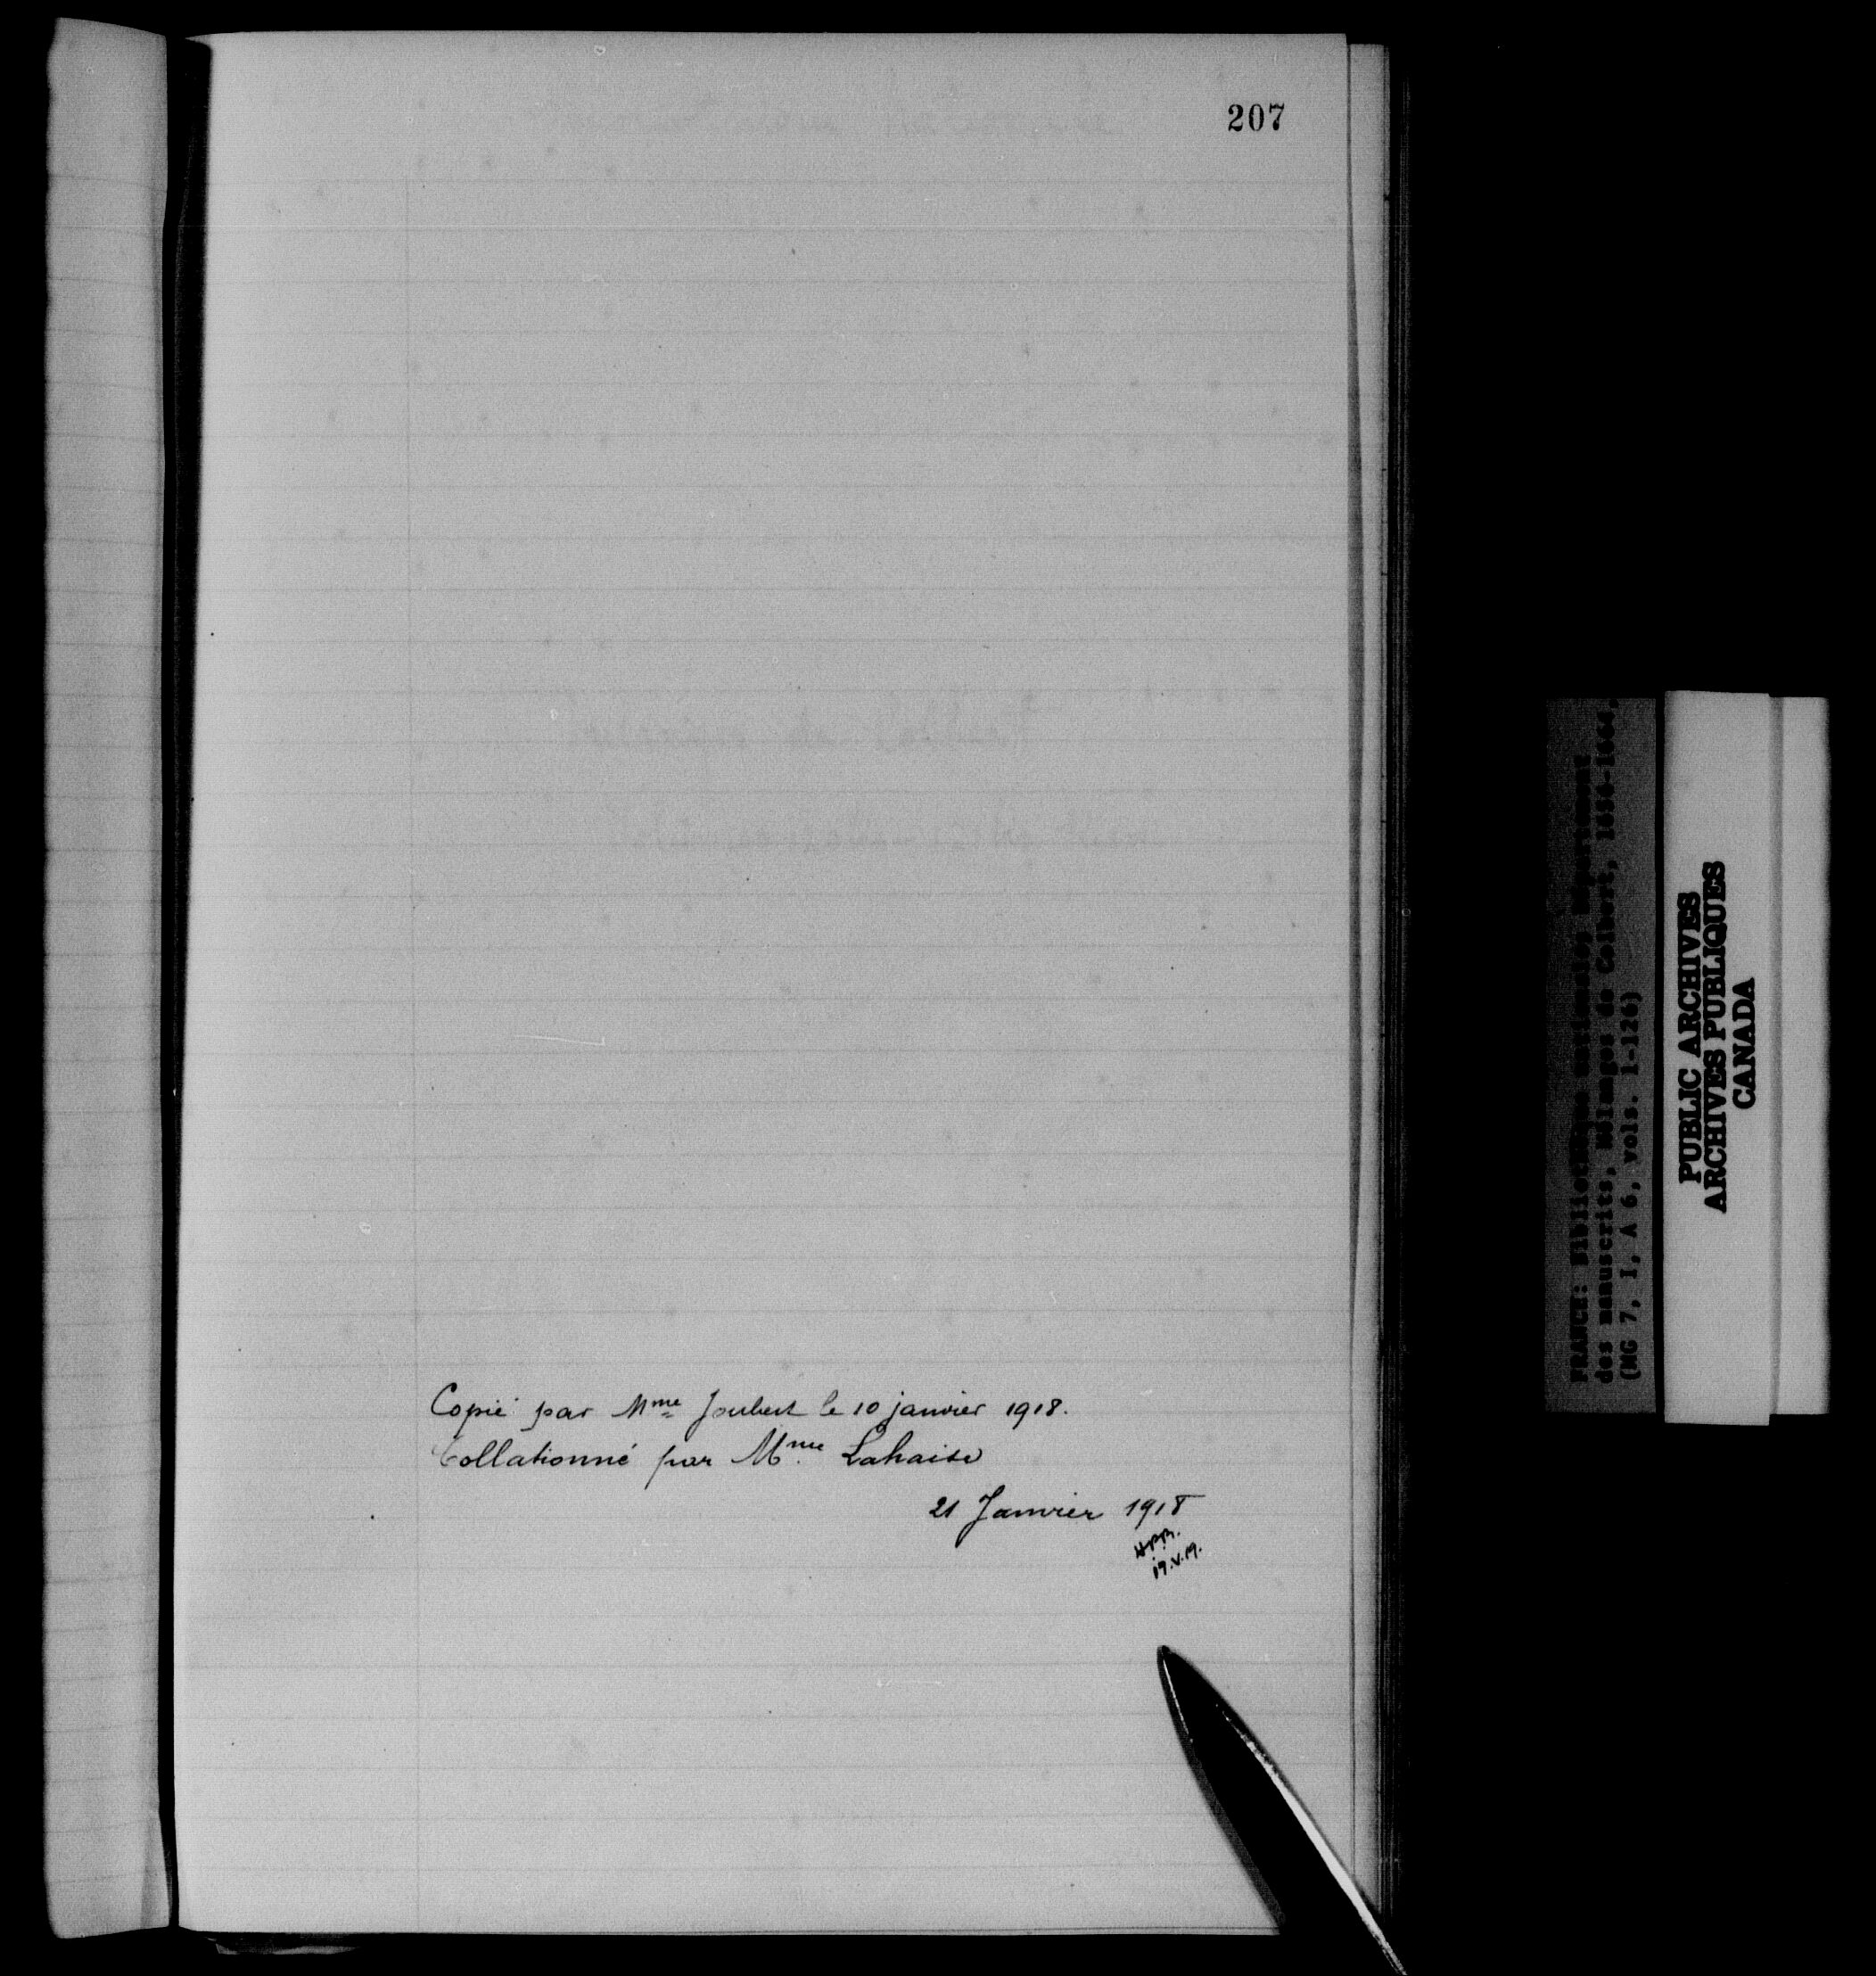 207
Copié par Mme Joubert le 10 janvier 1918.
Collationné par Mme Lahaise
21 Janvier 1918
19.V.19.
FRANCE: Bibliothèque nationale, Département
des manuscrits, Mélanges de Colbert,
(MG 7, I, A 6, vols. 1-126)
PUBLIC ARCHIVES
ARCHIVES PUBLIQUES
CANADA